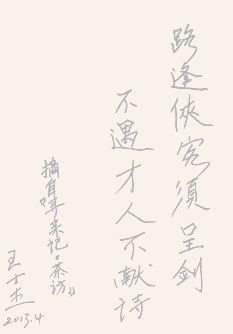 路逢俠客須呈剑
不遇才人不献诗
摘自《寻亲记·茶访》
王士杰
2013.4